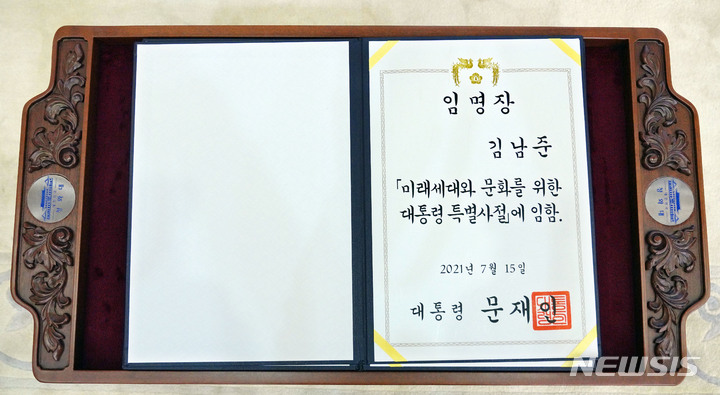 임명장
김남준
「미래세대와 문화를 위한
대통령 특별사절」에 임함.
2021년 7월 15일
대통령 문재인
NEWSIS